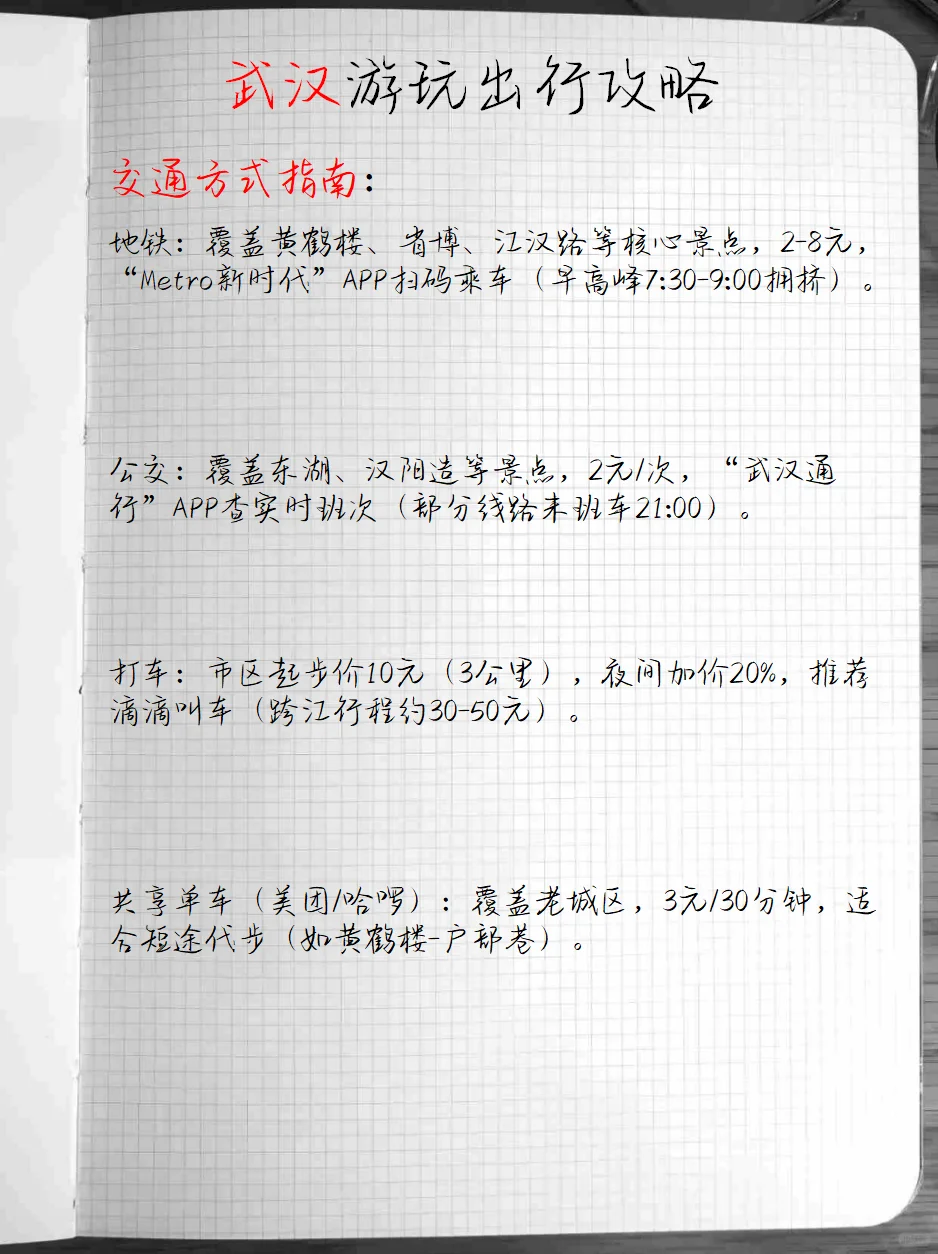 武汉游玩出行攻略
交通方式指南：
地铁：覆盖黄鹤楼、省博、江汉路等核心景点，2-8元，
“Metro新时代”APP扫码乘车（早高峰7:30-9:00拥挤）。
公交：覆盖东湖、汉阳造等景点，2元/次，“武汉通
行”APP查实时班次（部分线路末班车21:00）。
打车：市区起步价10元（3公里），夜间加价20%，推荐
滴滴叫车（跨江行程约30-50元）。
共享单车（美团/哈啰）：覆盖老城区，3元/30分钟，适
合短途代步（如黄鹤楼-户部巷）。